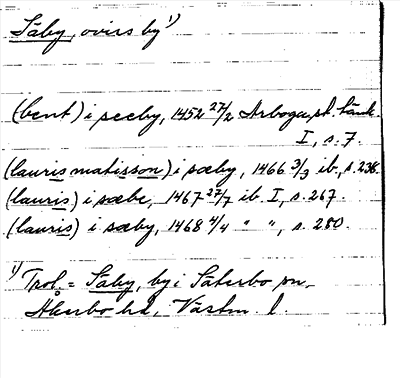 Säby, ovirs by 1)
(bent) i seeby, 1452 27/2 Arboga st. tänk.
I, s. 7.
(lauris matisson) i sæby, 1466 3/3 ib., s. 236.
(lauris) i sæbe, 1467 27/7 ib. I, s. 267.
(lauris) i sæby, 1468 4/4 " ", s. 280.
1) Trol. = Säby, by i Säterbo sn,
Åkerbo hd, Västm. l.